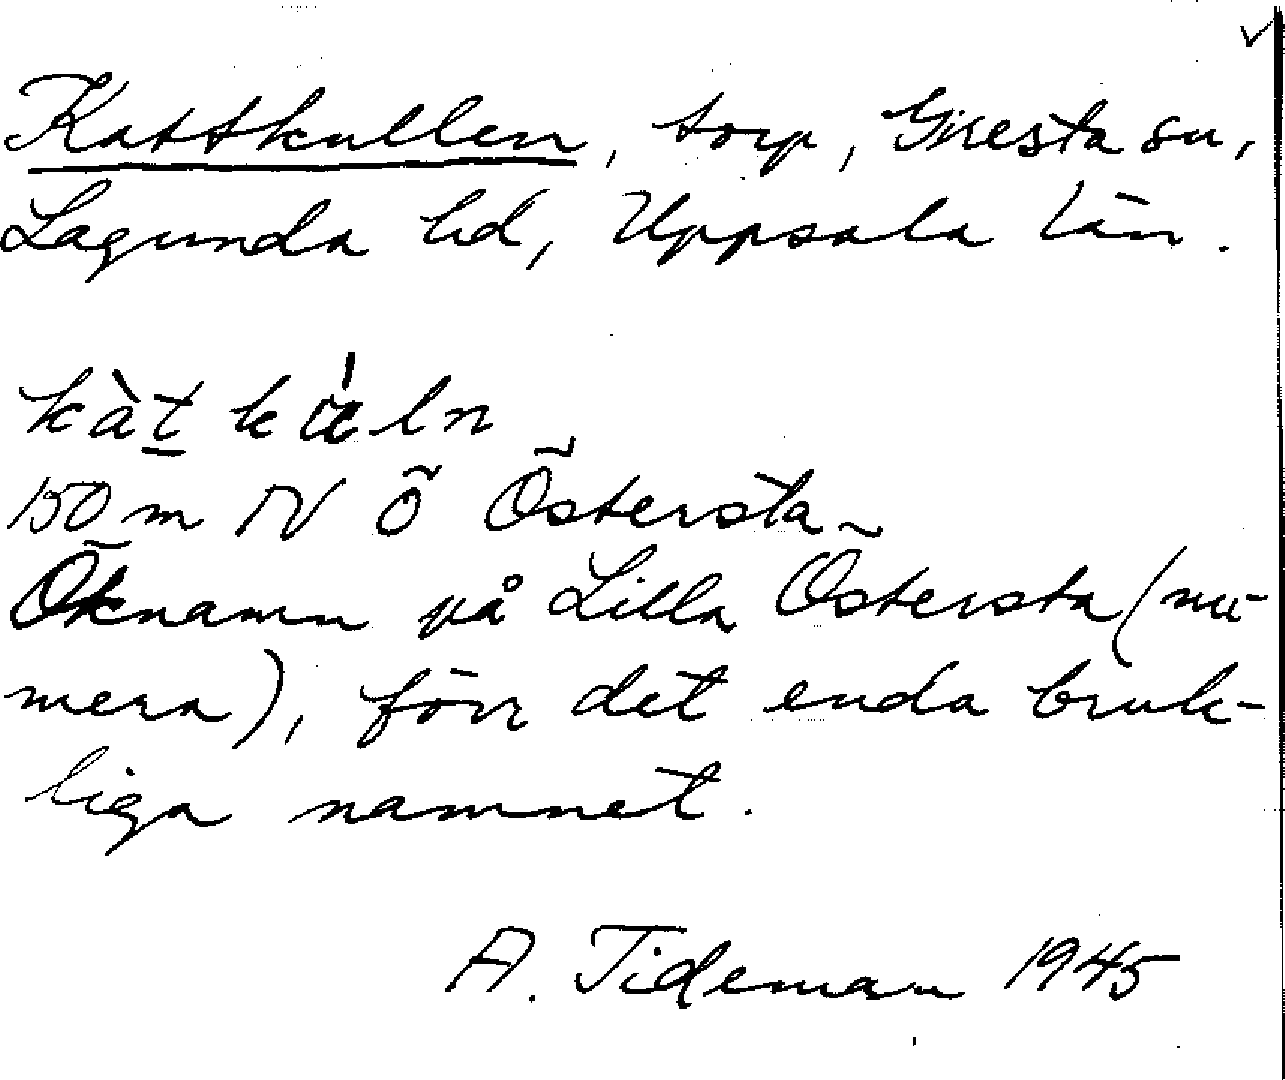 Kattkullen, torp, Gresta sn,
Lagunda hd, Uppsala län.
kàt
150 m N Ö Östersta
Öknamn på Lilla Östersta (nu-
mera), förr det enda bruk-
liga namnet.
A. Tideman 1945